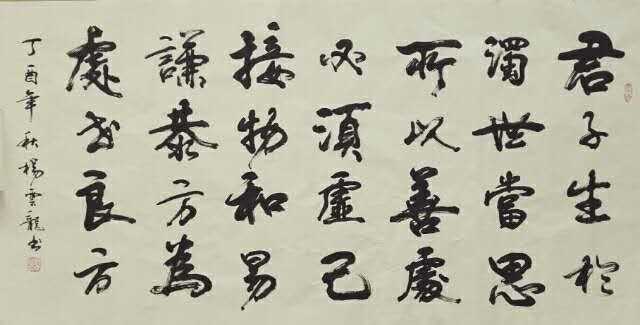 君子生於
濁世當思
所以善處
必須虛己
接物和易
謙恭方為
處世良方
丁酉年秋楊雲龍书